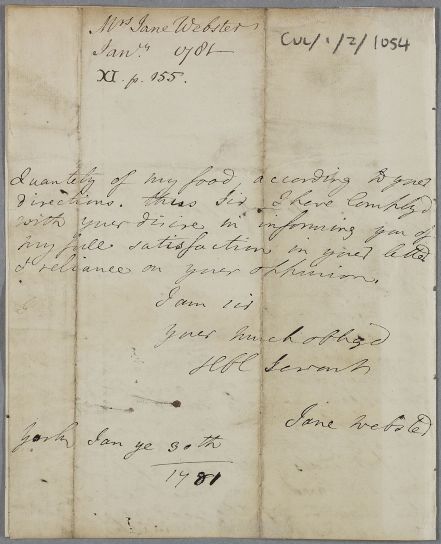 Mrs Jane Webster
Janry 1781
XI. p. 155.
CUL/1/2/1054
Quantety of my food, according to your
directions. thus Sir I have Complyd
with your disire in informing you of
my full satisfaction in your letter
& reliance on your oppinion.
I am sir
your much obligd
Hbl Servant
Jane Webster
York Jan ye 30th
1781